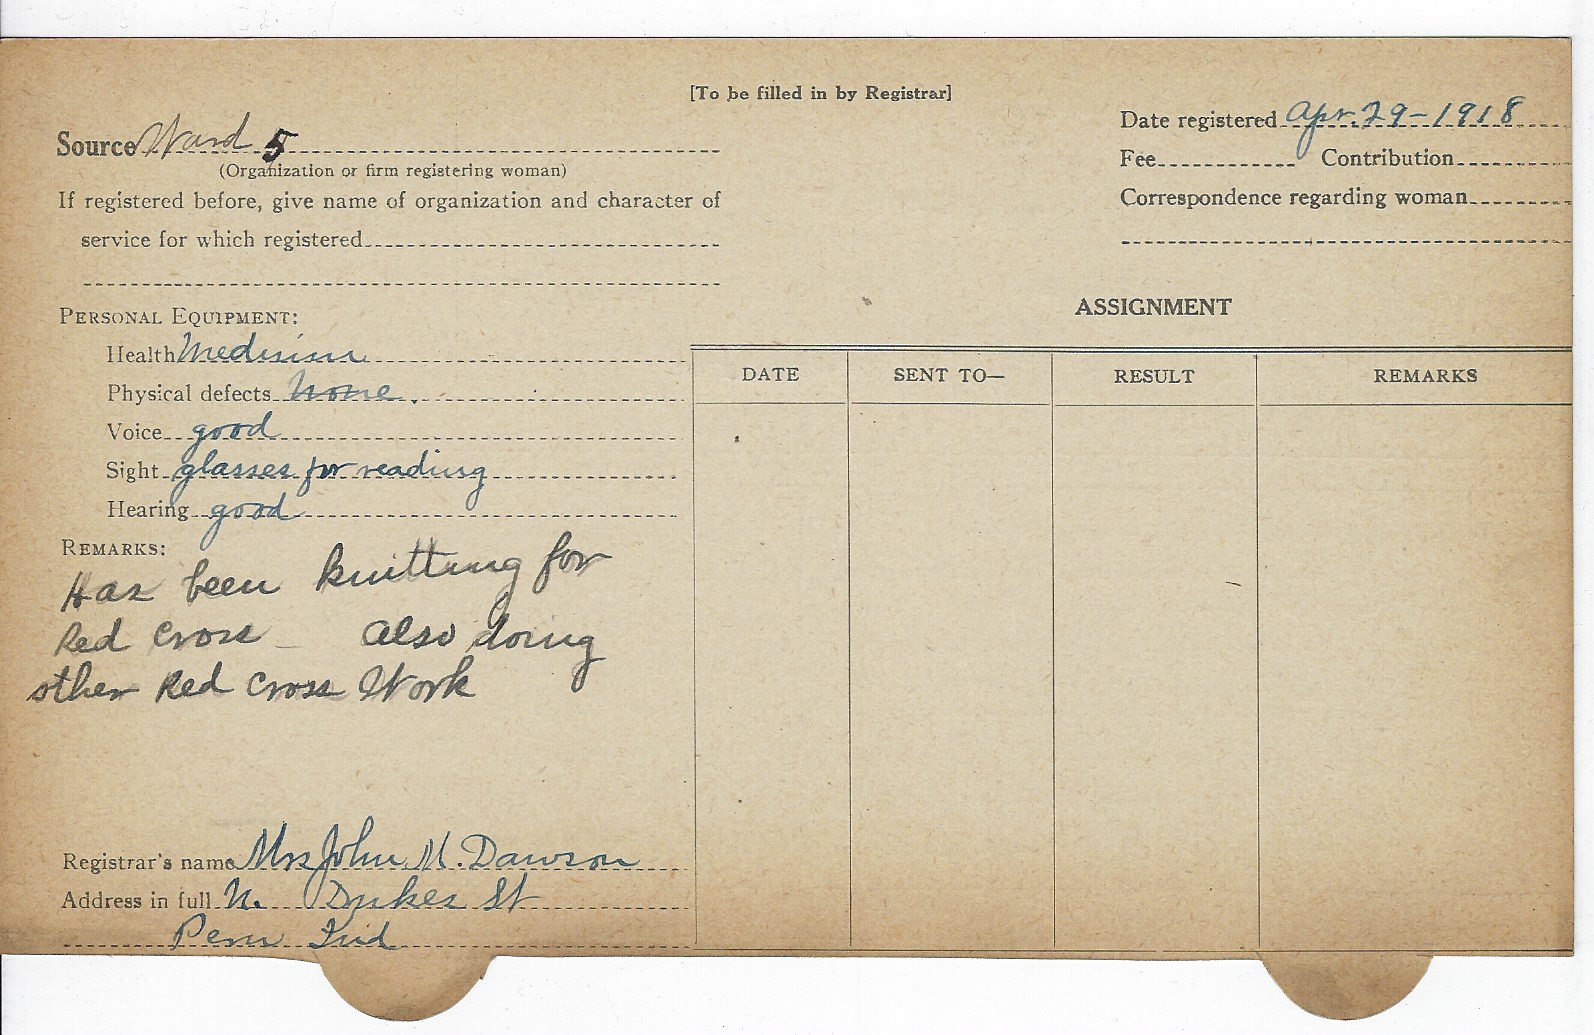 [To be filled in by Registrar]
Source Ward 5
(Organization or firm registering woman)
If registered before, give name of organization and character of
service for which registered
Date registered Apr. 29-1918
Fee Contribution
Correspondence regarding woman
PERSONAL EQUIPMENT:
Health Medisim
Physical defects none.
Voice good
Sight glasses for reading
Hearing good
REMARKS:
Has been knitting for
Red Cross - also doing
other Red Cross Work
Registrar's name Mrs John M. Dawson
Address in full N. Dukes St
Peru Ind
ASSIGNMENT
DATE SENT TO— RESULT REMARKS